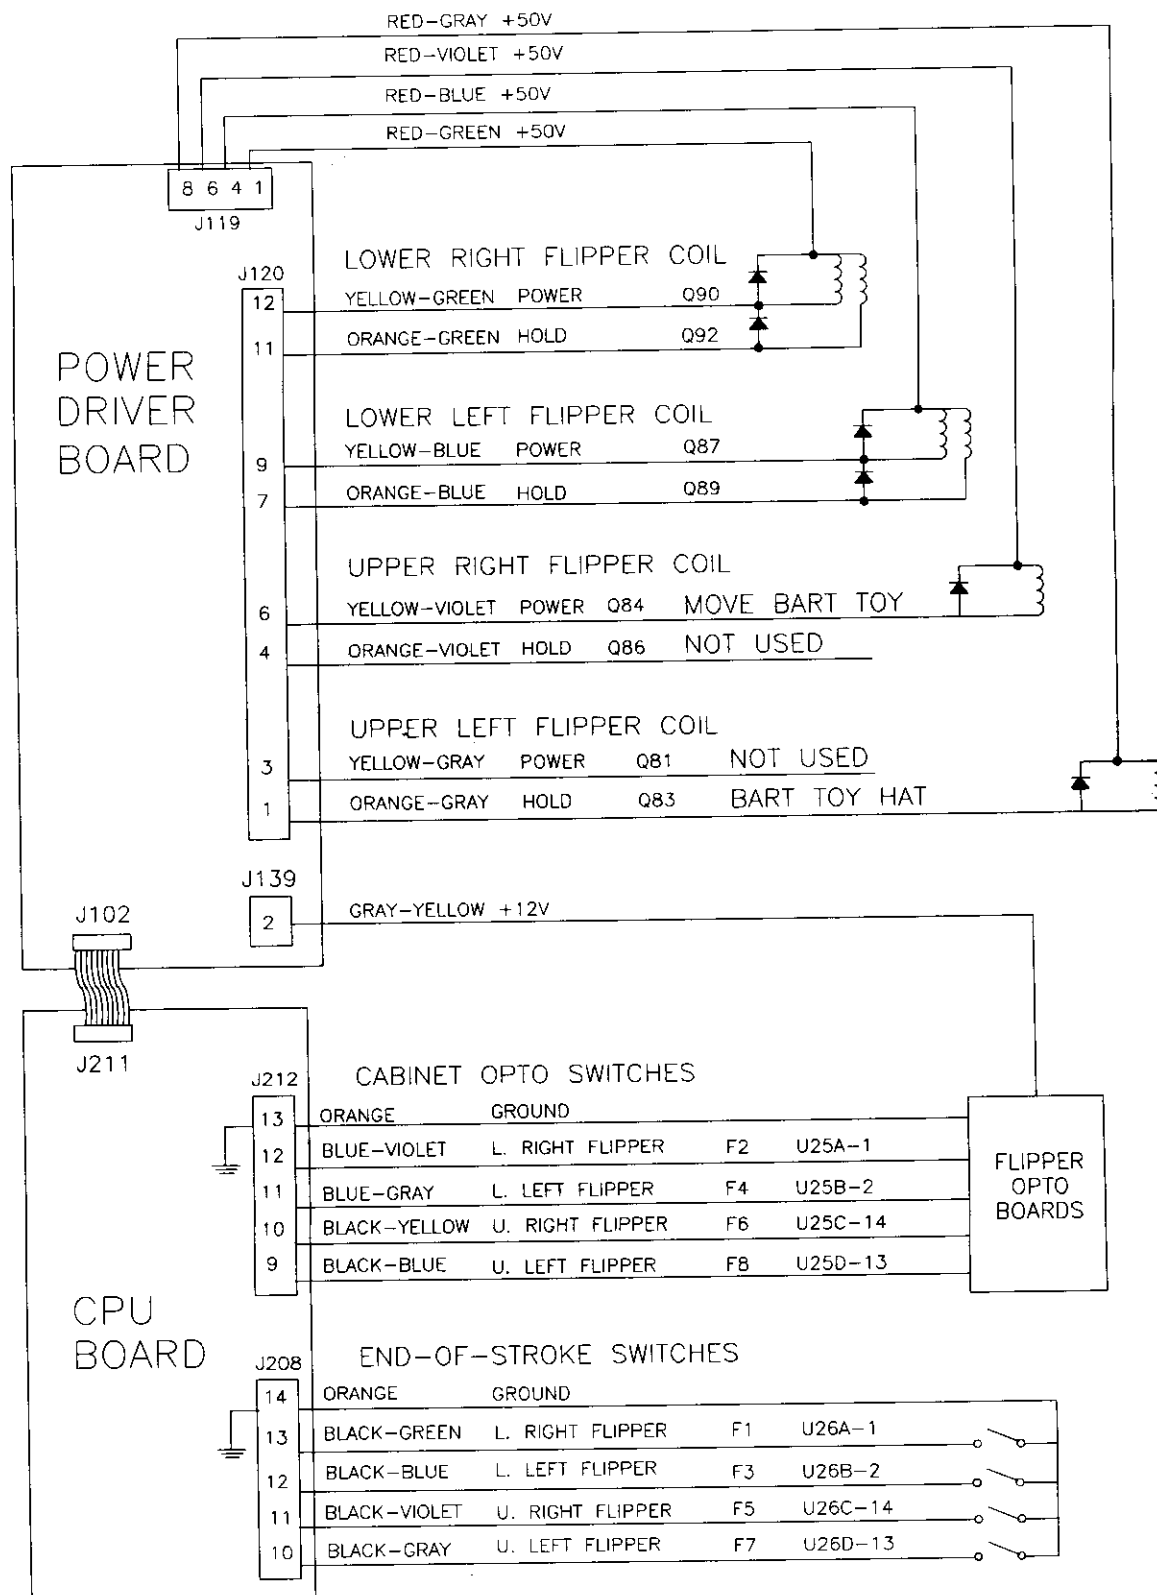 RED-GRAY +50V
RED-VIOLET +50V
RED-BLUE +50V
RED-GREEN +50V
8 6 4 1
J119
J120
LOWER RIGHT FLIPPER COIL
12 YELLOW-GREEN POWER Q90
11 ORANGE-GREEN HOLD Q92
POWER
DRIVER
BOARD
LOWER LEFT FLIPPER COIL
9 YELLOW-BLUE POWER Q87
7 ORANGE-BLUE HOLD Q89
UPPER RIGHT FLIPPER COIL
6 YELLOW-VIOLET POWER Q84 MOVE BART TOY
4 ORANGE-VIOLET HOLD Q86 NOT USED
UPPER LEFT FLIPPER COIL
3 YELLOW-GRAY POWER Q81 NOT USED
1 ORANGE-GRAY HOLD Q83 BART TOY HAT
J139
2 GRAY-YELLOW +12V
J102
J211
J212
CABINET OPTO SWITCHES
13 ORANGE GROUND
12 BLUE-VIOLET L. RIGHT FLIPPER F2 U25A-1
11 BLUE-GRAY L. LEFT FLIPPER F4 U25B-2
10 BLACK-YELLOW U. RIGHT FLIPPER F6 U25C-14
9 BLACK-BLUE U. LEFT FLIPPER F8 U25D-13
FLIPPER
OPTO
BOARDS
CPU
BOARD
J208
END-OF-STROKE SWITCHES
14 ORANGE GROUND
13 BLACK-GREEN L. RIGHT FLIPPER F1 U26A-1
12 BLACK-BLUE L. LEFT FLIPPER F3 U26B-2
11 BLACK-VIOLET U. RIGHT FLIPPER F5 U26C-14
10 BLACK-GRAY U. LEFT FLIPPER F7 U26D-13